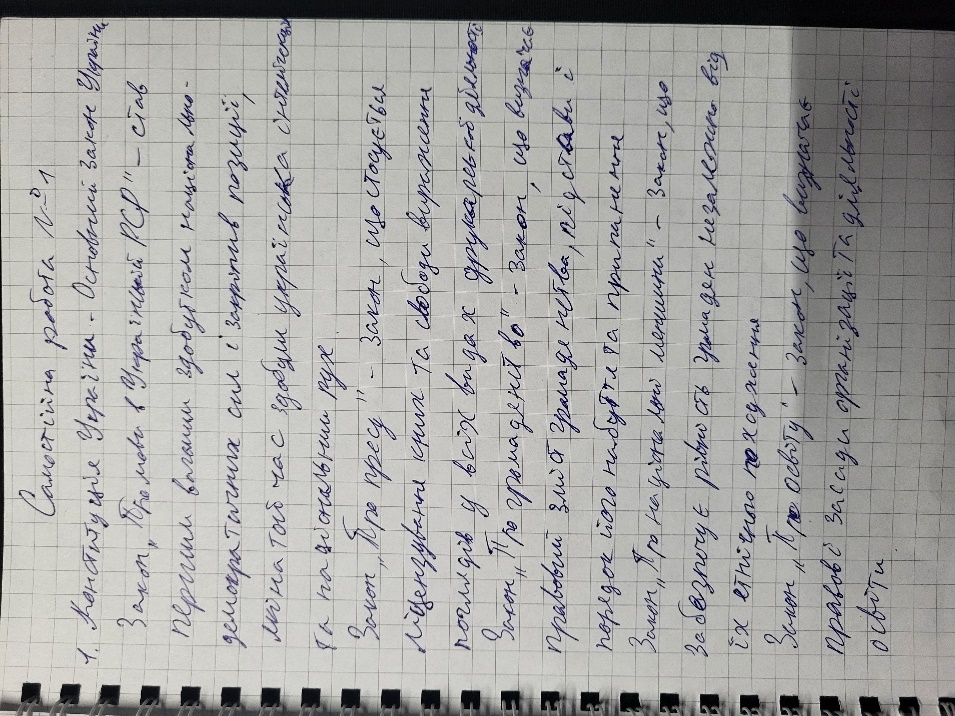 Самостійна робота №1
1. Конституція України - Основний Закон України
Закон „Про мови в Українській РСР" – став
першим вагомим здобутком національно-
демократичних сил і закріпив позиції,
які на той час здобули українська інтелігенція
та національний рух
Закон „Про пресу" – закон, що стосується
ліцензування книг та свободи вираження
поглядів у всіх видах друкарської діяльності
Закон „Про громадянство" - Закон, що визначає
правовий зміст громадянства, підстави і
порядок його набуття та припинення
Закон „Про національні меншини" – Закон, що
забезпечує рівність громадян незалежно від
їх етнічного походження
Закон „Про освіту" – Закон, що визначає
правові засади організації та діяльності
освіти.